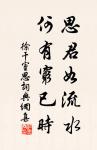 思君如流水
何有窮已時
徐干室思詞典網集